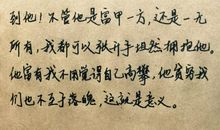 到他！不管他是富甲一方，还是一无
所有，我都可以张开手坦然拥抱他。
他富有我不用觉得自己高攀，他贫穷我
们也不至于落魄，这就是意义。